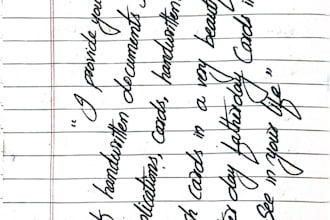 "I provide you
handwritten documents
cards, handwritten
cards in a very
day fatherday Cards
See in your life"